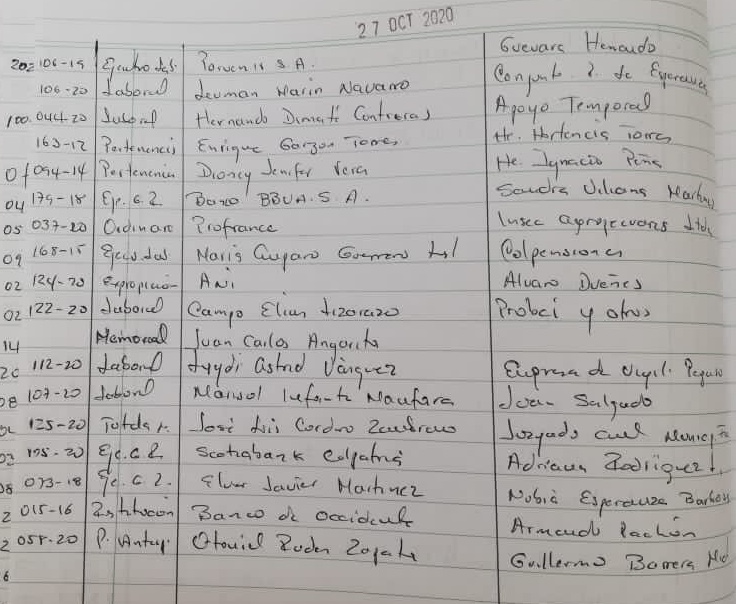 27 OCT 2020
202 106-19 Ejecutivo Lab. Porvenir S.A. Guevara Hernando
106-20 Laboral Leuman Marin Navarro Conjunto R. de Esperanza
100. 044-20 Laboral Hernando Dimaté Contreras Apoyo Temporal
163-12 Pertenencia Enrique Garzon Torres Hr. Hortencia Torres
01 094-14 Pertenencia Dioncy Jenifer Vera He. Ignacio Peña
04 179-18 Eje. G.2 Banco BBVA. S.A. Sandra Viliana Martinez
05 037-20 Ordinario Profrance Ltda
09 168-15 Maria Amparo Guerrero Colpensiones
02 124-20 Expropiación ANI Alvaro Dueñes
02 122-20 Laboral Campo Elias Lizarazo Probci y otros
14 Memorial Juan Carlos Angarita
20 112-20 Laboral Leydi Astrid Vásquez Empresa de Vigil.
08 107-20 Laboral Marisol Infante Naufara Joan Salgado
125-20 Tutela José Luis Cordero Juzgado Civil Municip
03 195-20 Eje. G.2 Scotiabank Colpatria Adriana Rodriguez
08 073-18 Eje. G.2. Elver Javier Martinez Nubia Esperanza Barbosa
2 015-16 Restitución Banco de Occidente Armando Pachón
2 058-20 P. Antic. Otoniel Ruden Zapata Guillermo Barrera
6